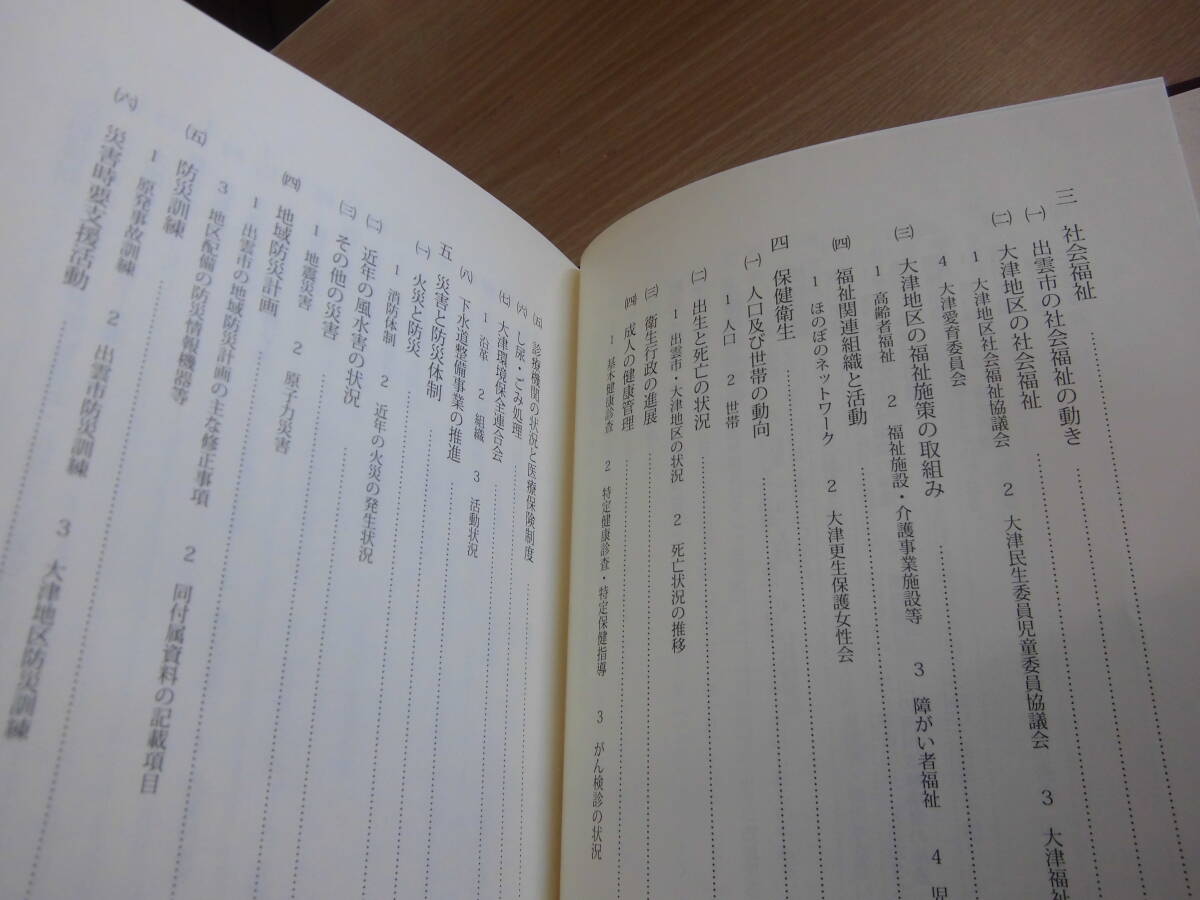 三 社会福祉
㈠ 出雲市の社会福祉の動き
㈡ 大津地区の社会福祉
1 大津地区社会福祉協議会 2 大津民生委員児童委員協議会 3 大津福祉
4 大津愛育委員会
㈢ 大津地区の福祉施策の取組み
1 高齢者福祉 2 福祉施設・介護事業施設等 3 障がい者福祉 4 児
㈣ 福祉関連組織と活動
1 ほのぼのネットワーク 2 大津更生保護女性会
四 保健衛生
㈠ 人口及び世帯の動向
1 人口 2 世帯
㈡ 出生と死亡の状況
1 出雲市・大津地区の状況 2 死亡状況の推移
㈢ 衛生行政の進展
㈣ 成人の健康管理
1 基本健康診査 2 特定健康診査・特定保健指導 3 がん検診の状況
㈤ 診療機関の状況と医療保険制度
㈥ し尿・ごみ処理
㈦ 大津環境保全連合会
1 沿革 2 組織 3 活動状況
㈧ 下水道整備事業の推進
五 災害と防災体制
㈠ 火災と防災
1 消防体制 2 近年の火災の発生状況
㈡ 近年の風水害の状況
㈢ その他の災害
1 地震災害 2 原子力災害
㈣ 地域防災計画
1 出雲市の地域防災計画の主な修正事項 2 同付属資料の記載項目
3 地区配備の防災情報機器等
㈤ 防災訓練
1 原発事故訓練 2 出雲市防災訓練 3 大津地区防災訓練
㈥ 災害時要支援活動